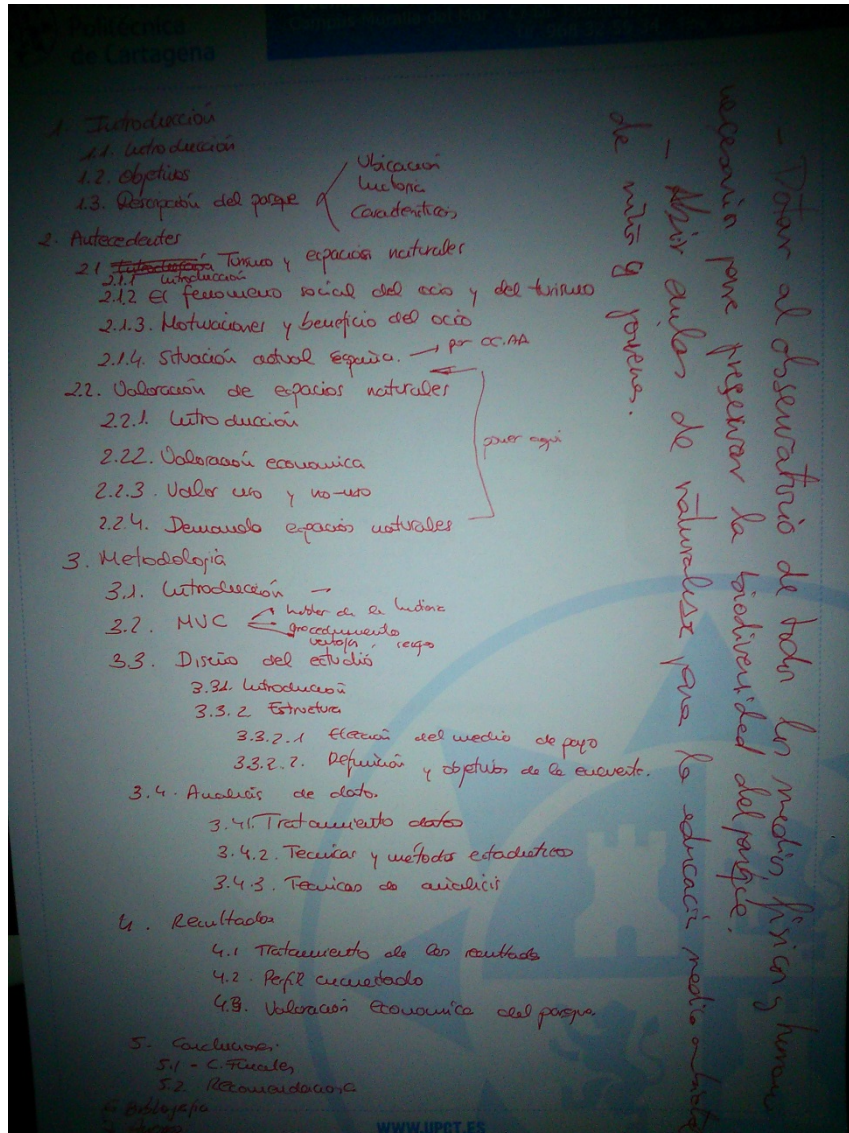 Politécnica
de Cartagena
1. Introducción
1.1. Introducción
1.2. Objetivos
1.3. Descripción del parque
Ubicación
historia
Características
2. Antecedentes
2.1 Turismo y espacios naturales
2.1.1 introducción
2.1.2 El fenomeno social del ocio y del turismo
2.1.3. Motivaciones y beneficio del ocio
2.1.4. Situación actual España. → por CC.AA
2.2. Valoración de espacios naturales
2.2.1. Introducción
2.2.2. Valoración economica
2.2.3. Valor uso y no-uso
2.2.4. Demanda espacios naturales
poner aqui
3. Metodología
3.1. Introducción
3.2. MVC
procedimiento
ventajas, sesgos
3.3. Diseño del estudio
3.3.1. Introducción
3.3.2 Estructura
3.3.2.1 Elección del medio de pago
3.3.2.2. Definición y objetivos de la encuesta.
3.4. Analisis de datos.
3.4.1. Tratamiento datos
3.4.2. Tecnicas y metodos estadisticos
3.4.3. Tecnicas de analisis
4. Resultados
4.1 Tratamiento de los resultados
4.2. Perfil encuestado
4.3. Valoración Economica del parque.
5. Conclusiones.
5.1 - C. Finales
5.2. Recomendaciones
Bibliografia
WWW.UPCT.ES
- Dotar al observatorio de todos los medios físicos y humanos
necesario para preservar la biodiversidad del parque.
- Abrir aulas de naturaleza para la educación medio ambiental
de niños y jovenes.